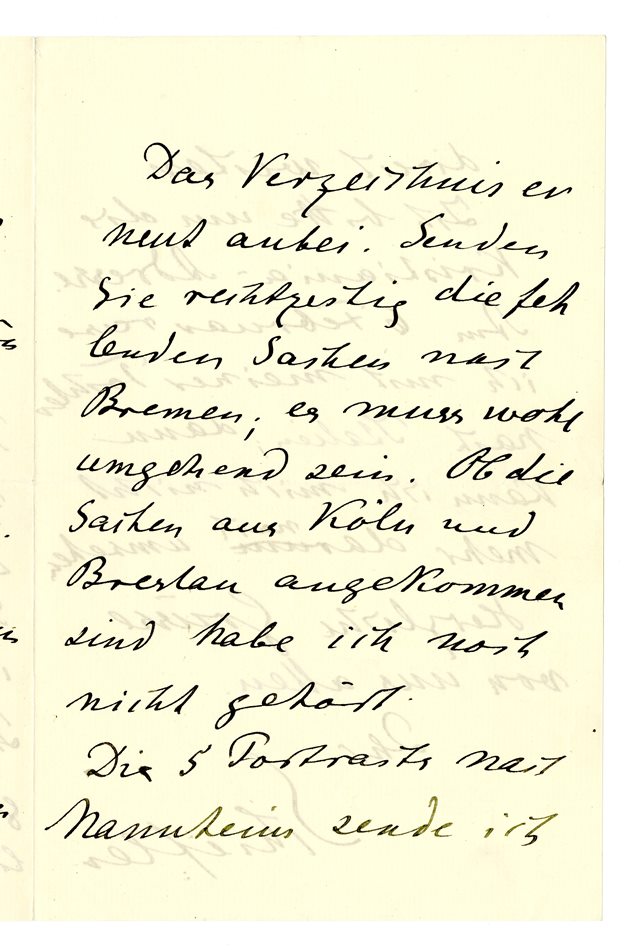 Das Verzeichnis er
neut anbei. Senden
Sie rechtzeitig die feh
lenden Sachen nach
Bremen, es muss wohl
umgehend sein. Ob die
Sachen aus Köln und
Breslau angekommen
sind habe ich noch
nicht gehört.
Die 5 Portraits nach
Mannheim sende ich